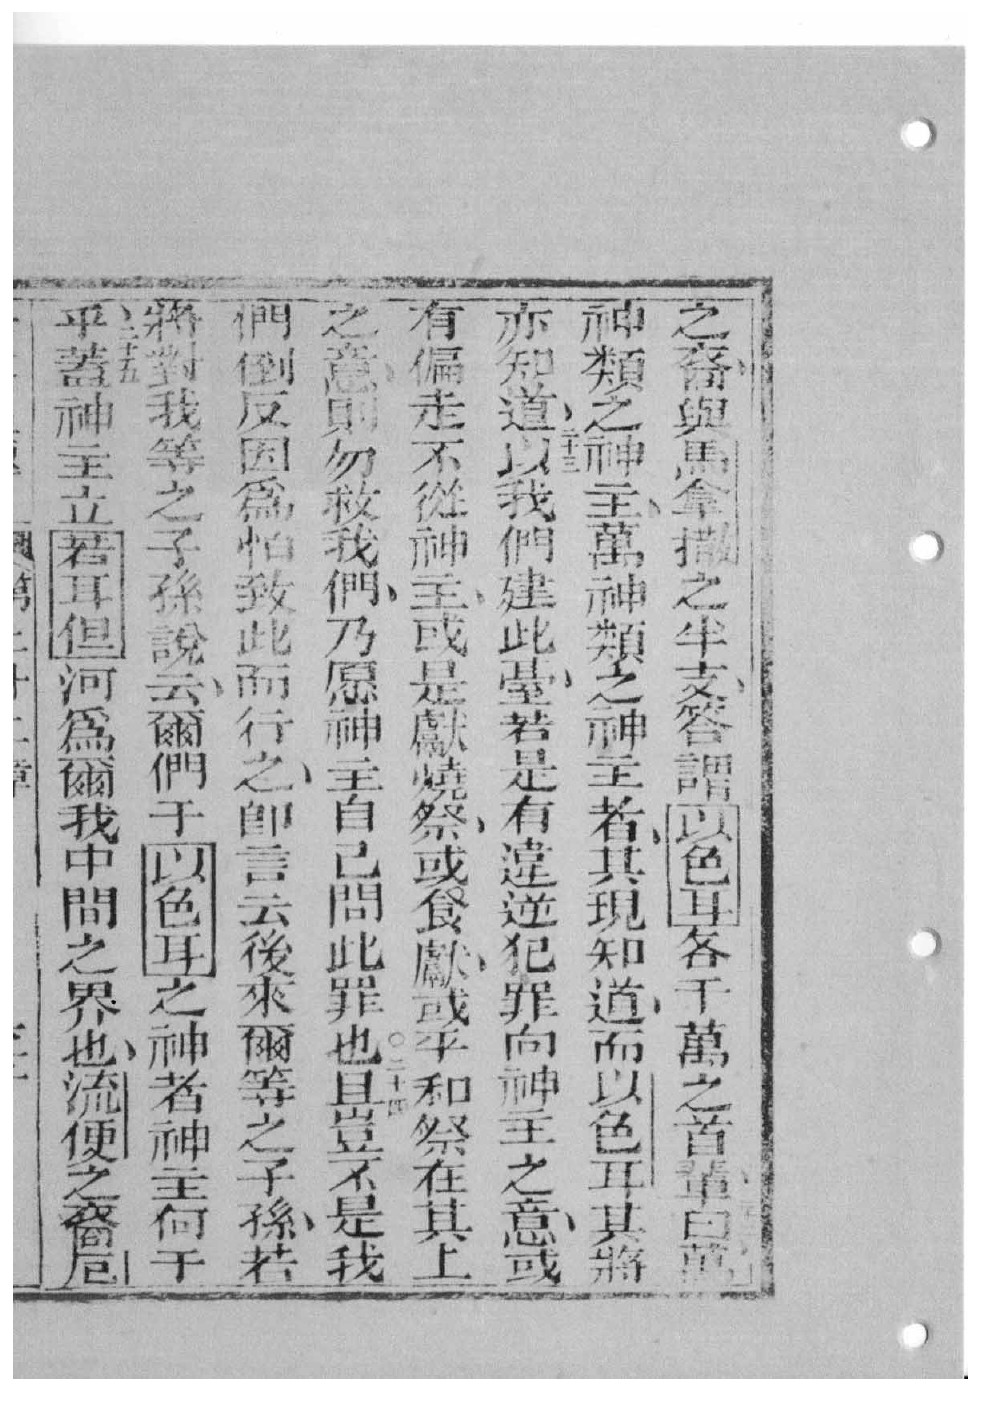 之裔與馬拿撒之半支答謂以色耳各千萬之首輩曰萬
神類之神主萬神類之神主者其現知道而以色耳其將
亦知道二十三以我們建此臺若是有違逆犯罪向神主之意或
有偏走不從神主或是獻燒祭或食獻或平和祭在其上
之意則勿救我們乃愿神主自己問此罪也〇二十四且豈不是我
們倒反因爲怕致此而行之卽言云後來爾等之子孫若
將對我等之子孫說云爾們于以色耳之神者神主何干
乎二十五蓋神主立若耳但河爲爾我中間之界也流便之裔厄